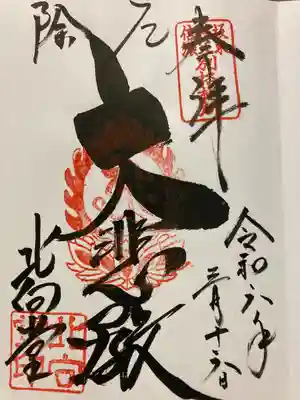 奉拝
厄除
大悲殿
北向堂
令和六年
三月十六日